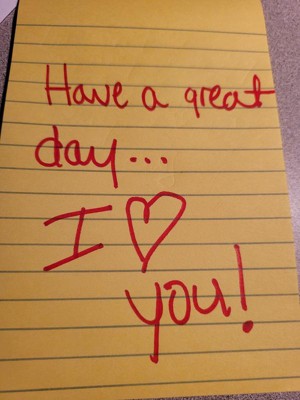 Have a great
day...
I ♡
you!